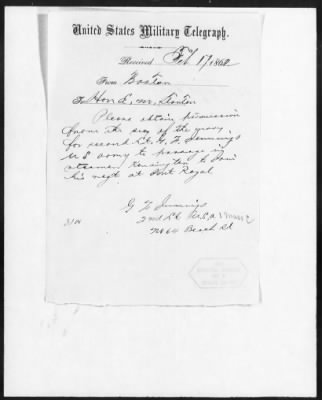 United States Military Telegraph.
Received Feb 17, 186
From Boston
To Hon E. M. Stanton
Please obtain permission
from the secy of the navy
for second Lt. G. F. Jennings
U S Army to passage in
steamer Kensington to Join
his regt at Port Royal
G F Jennings
2nd Lt U.S.A
No 64 Beach St